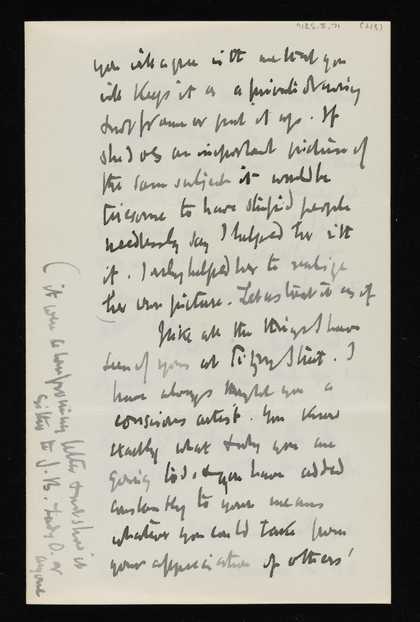 you will agree with me that you
will keep it as a private drawing
& not frame or put it up. If
she does an important picture of
the same subject it would be
tiresome to have stupid people
needlessly say I helped her with
it. I only helped her to realize
her own picture. Let us treat it as if
(it were a compromising letter & not show it
either to J.B. Lady O. or
anyone)
I like all the things I have
seen of yours at Fitzroy Street. I
have always thought you a
conscious artist. You know
exactly what & why you are
going to do, & you have added
constantly to your means
whatever you could take from
your appreciation of others'